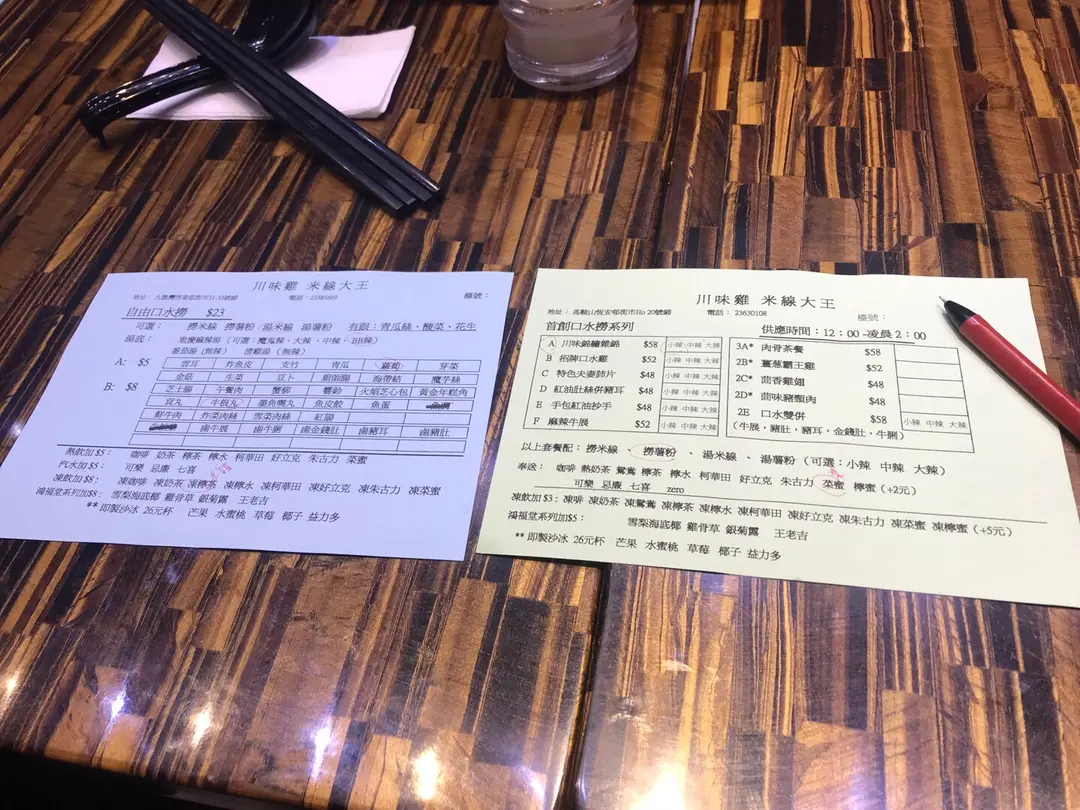 川味雞 米線大王
地址： 九龍灣啓業邨街市31-33號鋪 電話：23381669 檯號：
自由口水撈 $23
可選： 撈米線 撈薯粉 湯米線 湯薯粉 有餸：青瓜絲、酸菜、花生
湯底： 重慶麻辣湯 （可選：魔鬼辣、大辣、中辣、BB辣）
番茄湯（無辣） 清雞湯（無辣）
A: $5
雲耳 炸魚皮 支竹 青瓜 蘿蔔 芽菜
金菇 生菜 豆卜 廚師腸 海帶結 魔芋絲
B: $8
芝士腸 午餐肉 蟹柳 響鈴 火焰芝心包 黃金年糕角
貢丸 牛根丸 墨魚嘴丸 魚皮餃 魚蛋
鮮牛肉 炸菜肉絲 雪菜肉絲 紅腸
鹵牛展 鹵牛脷 鹵金錢肚 鹵豬耳 鹵豬肚
熱飲加 $5： 咖啡 奶茶 檸茶 檸水 柯華田 好立克 朱古力 菜蜜
汽水加 $5： 可樂 忌廉 七喜
凍飲加 $8： 凍咖啡 凍奶茶 凍檸茶 凍檸水 凍柯華田 凍好立克 凍朱古力 凍菜蜜
鴻福堂系列加$8： 雪梨海底椰 雞骨草 銀菊露 王老吉
** 即製沙冰 26元杯 芒果 水蜜桃 草莓 椰子 益力多
川味雞 米線大王
地址： 馬鞍山恆安邨街市Ho 20號鋪 電話： 23630108 檯號：
首創口水撈系列 供應時間：12：00 -凌晨 2：00
A 川味錦繡雜錦 $58 小辣 中辣 大辣
B 招牌口水雞 $52 小辣 中辣 大辣
C 特色夫妻肺片 $48 小辣 中辣 大辣
D 紅油肚絲併豬耳 $48 小辣 中辣 大辣
E 手包紅油抄手 $48 小辣 中辣 大辣
F 麻辣牛展 $52 小辣 中辣 大辣
3A* 肉骨茶餐 $58
2B* 薑葱霸王雞 $52
2C* 茴香雞翅 $48
2D* 茴味豬頸肉 $48
2E 口水雙併 $58 小辣 中辣 大辣
（牛展，豬肚，豬耳，金錢肚，牛脷）
以上套餐配：撈米線 、 撈薯粉 、 湯米線 、 湯薯粉（可選：小辣 中辣 大辣）
奉送： 咖啡 熱奶茶 鴛鴦 檸茶 檸水 柯華田 好立克 朱古力 菜蜜 檸蜜（+2元）
可樂 忌廉 七喜 zero
凍飲加 $3：凍咖啡 凍奶茶 凍鴛鴦 凍檸茶 凍檸水 凍柯華田 凍好立克 凍朱古力 凍菜蜜 凍檸蜜（+5元）
鴻福堂系列加$5： 雪梨海底椰 雞骨草 銀菊露 王老吉
** 即製沙冰 26元杯 芒果 水蜜桃 草莓 椰子 益力多